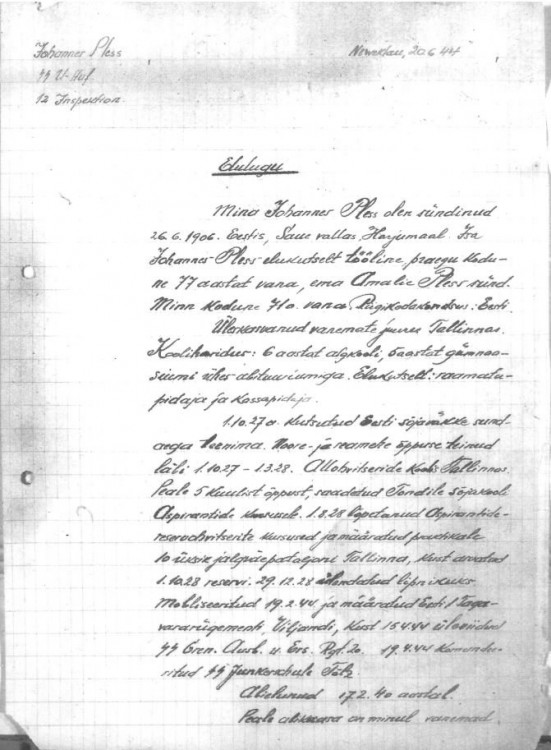 Johannes Pless
Neweklau, 20.6.44
SS U-Huf.
12 Inspektion.
Elulugu
Mina Johannes Pless olen sündinud
26.6.1906. Eestis, Saue vallas, Harjumaal. Isa
Johannes Pless elukutselt tööline praegu kodu-
ne 77 aastat vana, ema Amalie Pless sünd.
Minn kodune 71 a. vana. Riigikodakondsus: Eesti.
Üleskasvanud vanemate juures Tallinnas.
Kooliharidus: 6 aastat algkooli, 5 aastat gümnaa-
siumi ühes abituuriumiga. Elukutselt: raamatu-
pidaja ja kassapidaja.
1.10.27 a kutsutud Eesti sõjaväkke sund-
aega teenima. Noore- ja reamehe õppuse teinud
läbi 1.10.27 - 1.3.28. Allohvitseride Koolis Tallinnas.
Peale 5 kuulist õppust, saadetud Tondile Sõjakooli
Aspirantide kursusele. 1.8.28 lõpetanud Aspirantide-
reservohvitserite kursused ja määratud praktikale
10 üksik jalgväepataljoni Tallinna, kust arvatud
1.10.28 reservi. 29.12.28 ülendatud lipnikuks.
Mobiliseeritud 19.2.44 ja määratud Eesti 1 Taga-
vararügementi, Viljandi, kust 15.4.44 üleviidud
SS Gren. Ausb. u. Ers. Rgt. 20. 19.4.44 komandee-
ritud SS Junkerschule Tölz
Abielunud 17.2. 40 aastal.
Peale abikaasa on minul vanemad.